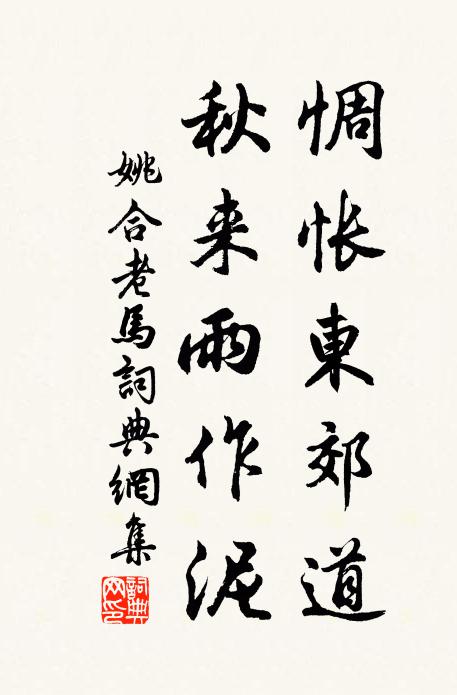 惆怅東郊道
秋来雨作泥
姚合老馬詞典網集
詞典網印